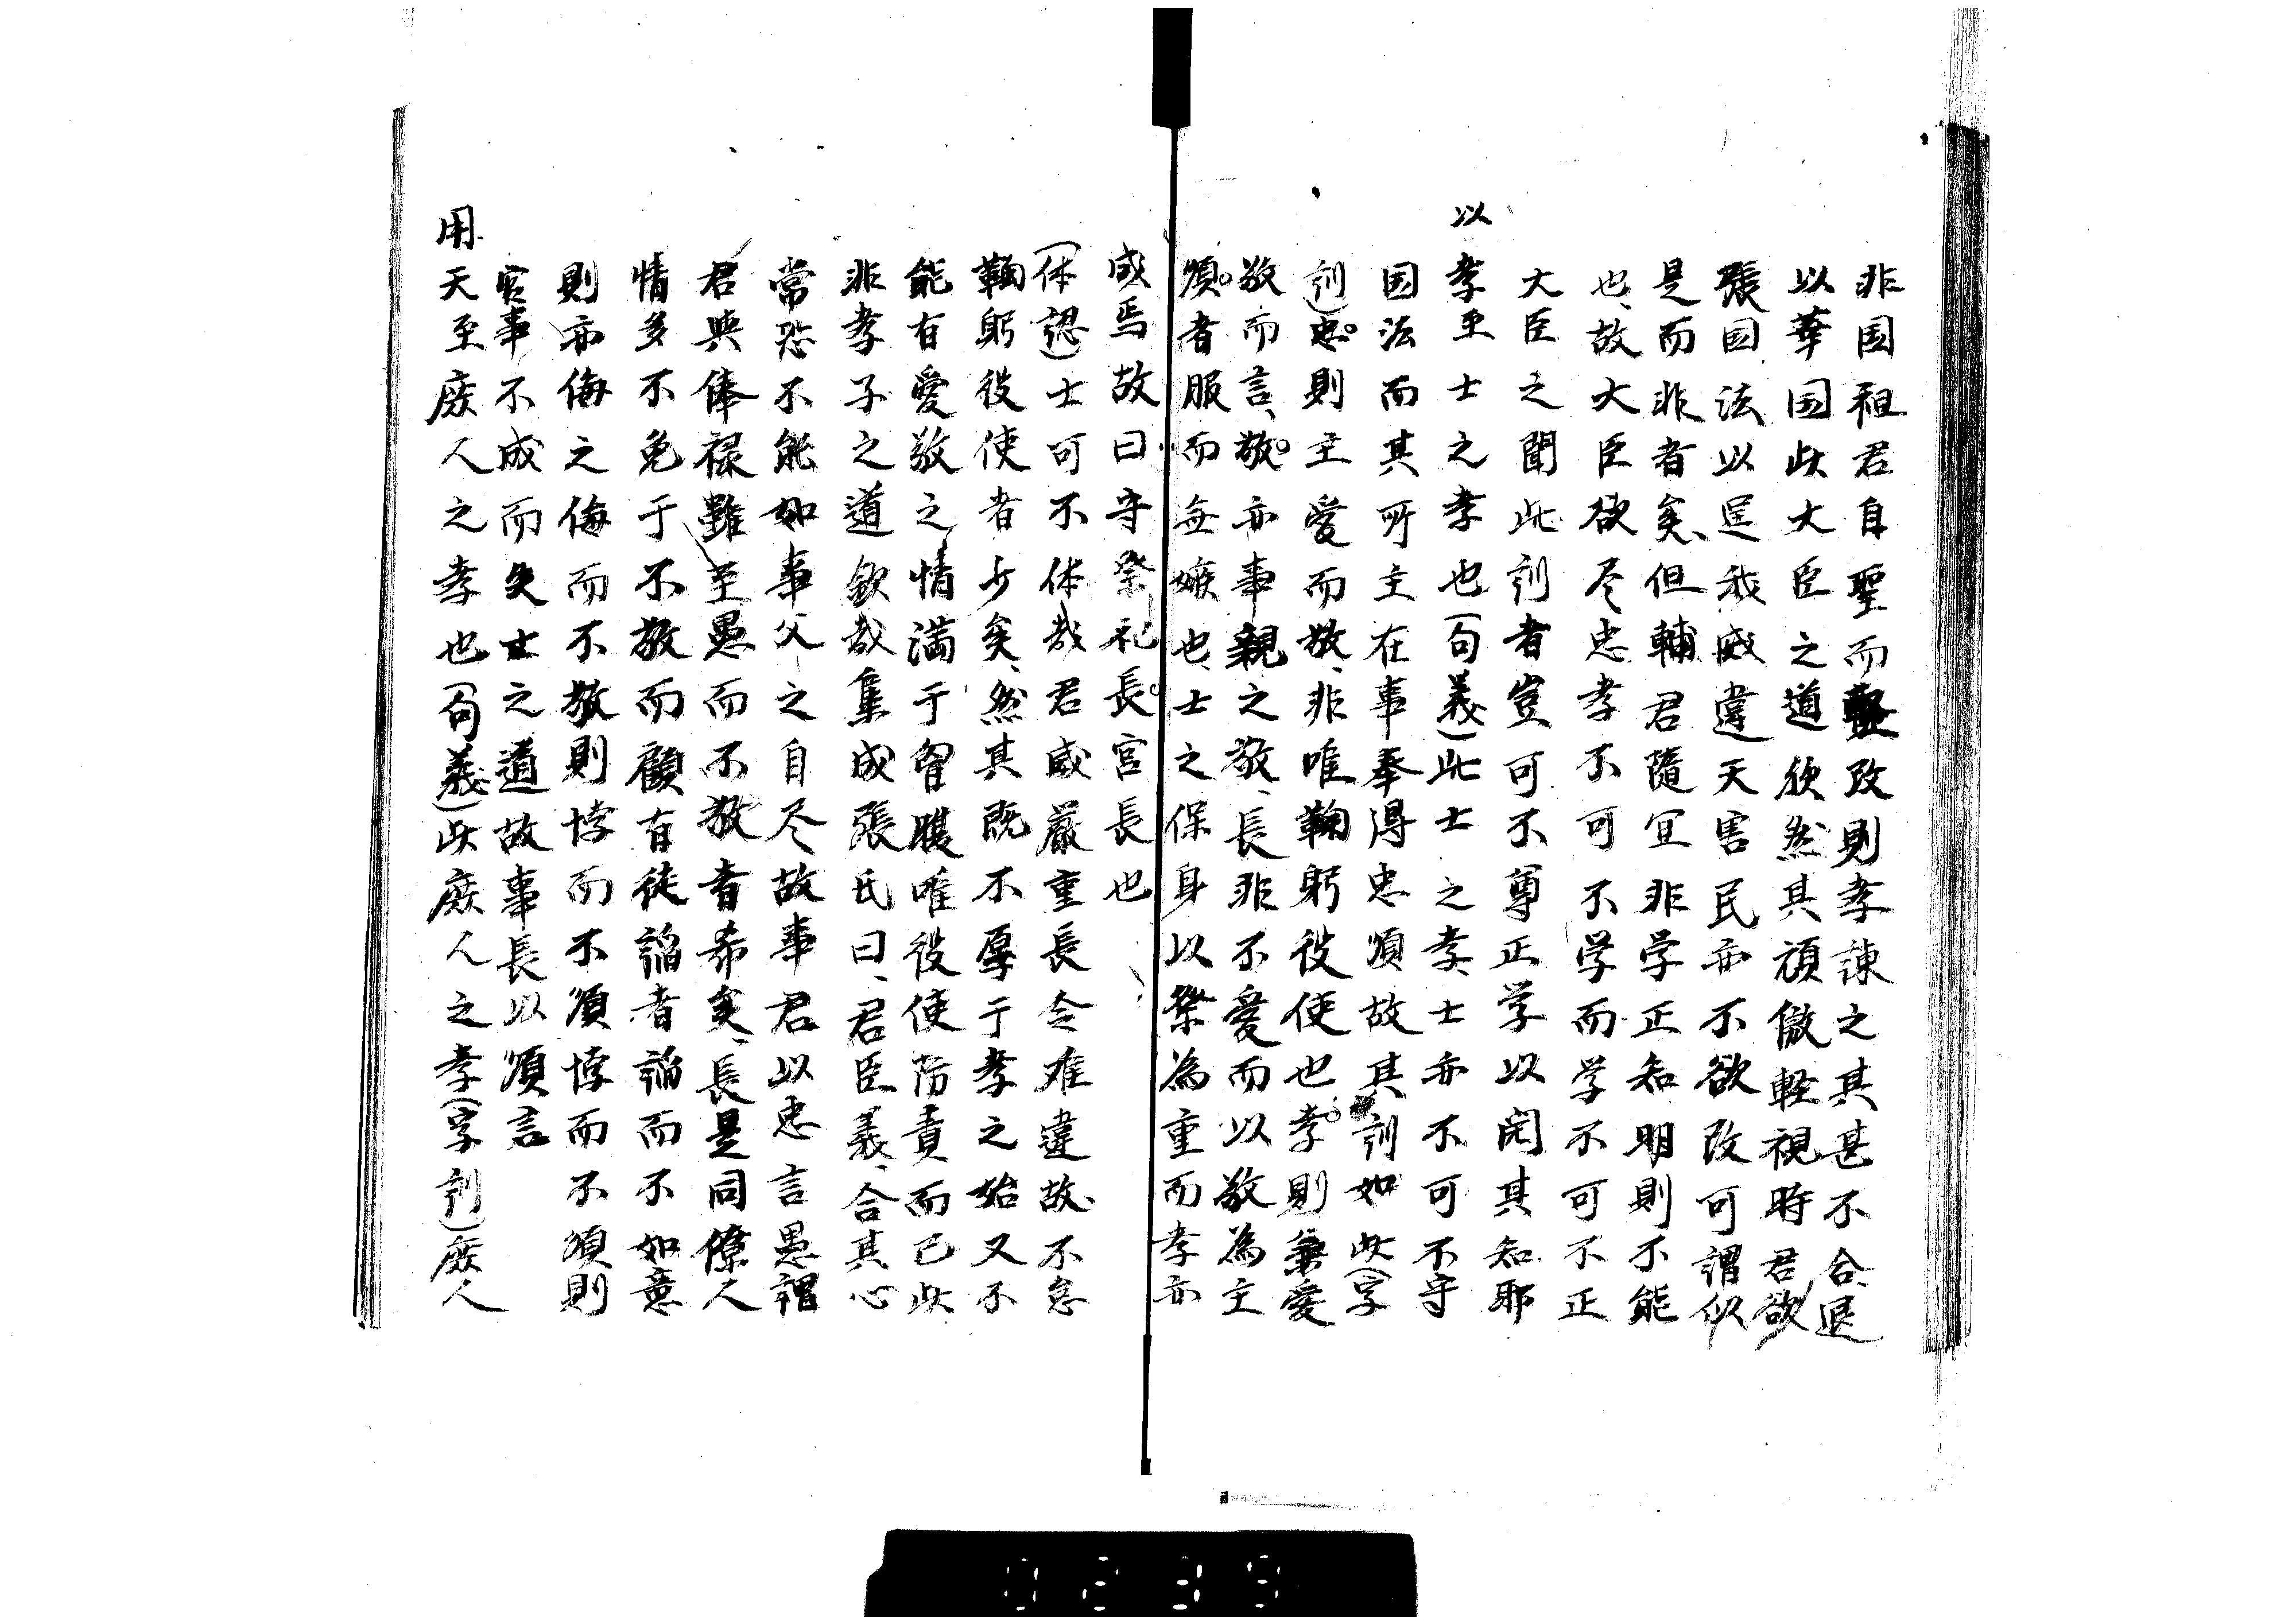 非国祖君自聖而改則孝諫之其甚不合退
以華国此大臣之道欣然其頑傲軽視時君欲
張国法以逞我威違天害民亦不欲改可謂似
是而非者矣但輔君隨宜非学正知明則不能
也故大臣欲尽忠孝不可不学而学不可不正
大臣之聞此訓者豈可不尊正学以開其知耶
以孝至士之孝也(句義)此士之孝士亦不可不守
国法而其所主在事奉得忠順故其訓如此(字
訓)忠則主愛而敬非唯鞠躬役使也孝則兼愛
敬而言敬亦事親之敬長非不愛而以敬為主
順者服而無嫉也士之保身以祭為重而孝亦
成焉故曰守祭祀長官長也
(体認)士可不体哉君威厳重長令难違故不怠
鞠躬役使者少矣然其既不厚于孝之始又不
能有愛敬之情満于胷臆唯役使防責而已此
非孝子之道欽哉集成張氏曰君臣義合其心
常恐不能如事父之自尽故事君以忠言愚謂
君與俸禄雖至愚而不敬者希矣長是同僚人
情多不免于不敬而顧有徒諂者諂而不如意
則亦侮之侮而不敬則悖而不順悖而不順則
官事不成而失士之道故事長以順言
用天至庻人之孝也(句義)此庻人之孝(字訓)庻人